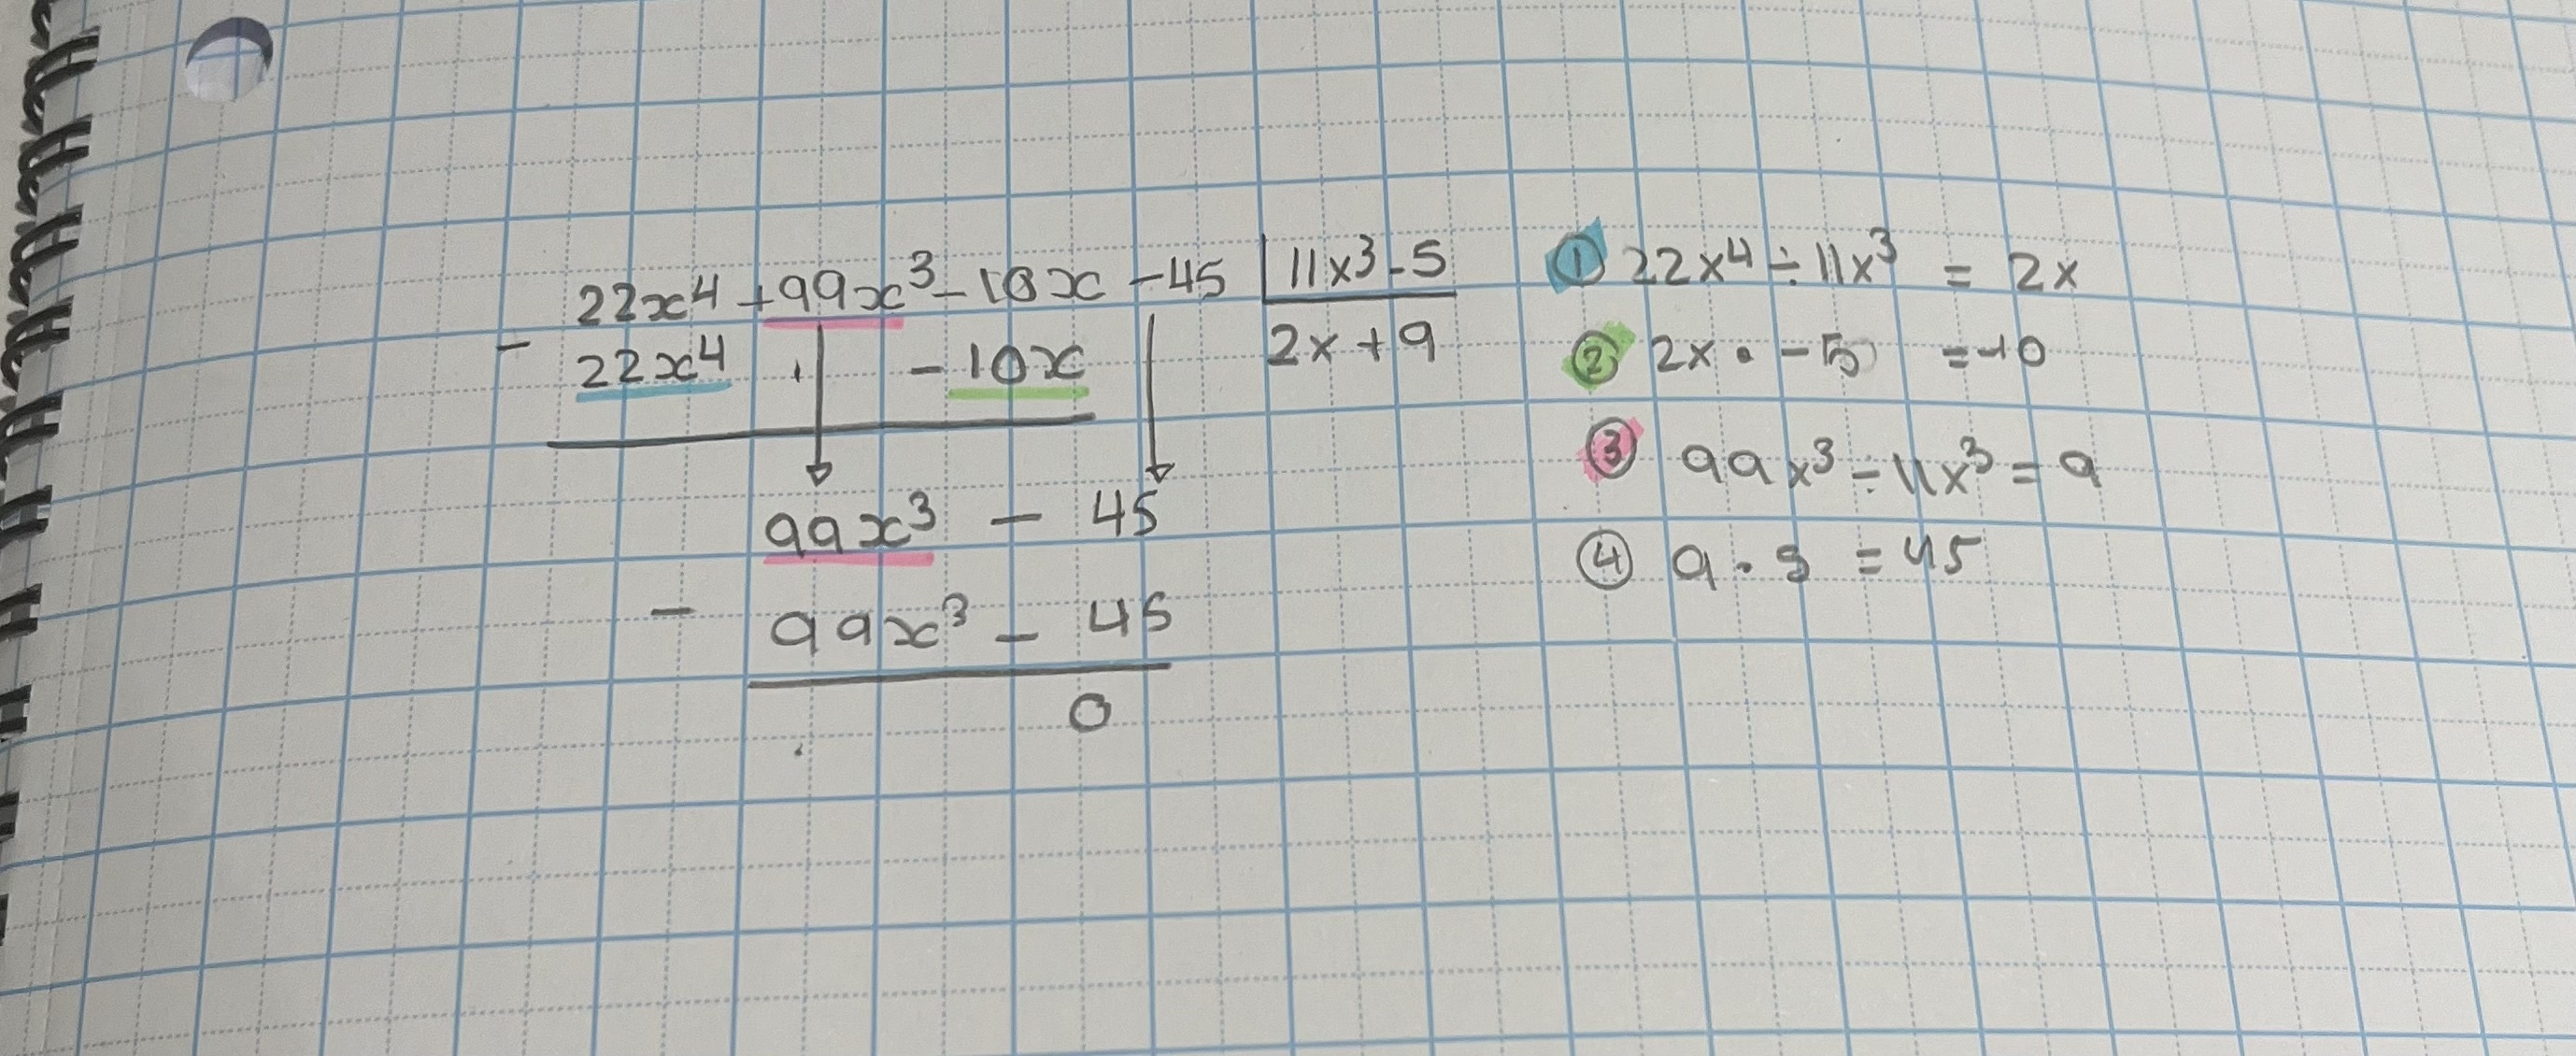 22x⁴ + 99x³ - 10x - 45 | 11x³ - 5
- 22x⁴ - 10x 2x + 9
99x³ - 45
- 99x³ - 45
0
① 22x⁴ ÷ 11x³ = 2x
② 2x · -5 = -10
③ 99x³ ÷ 11x³ = 9
④ 9 · 5 = 45